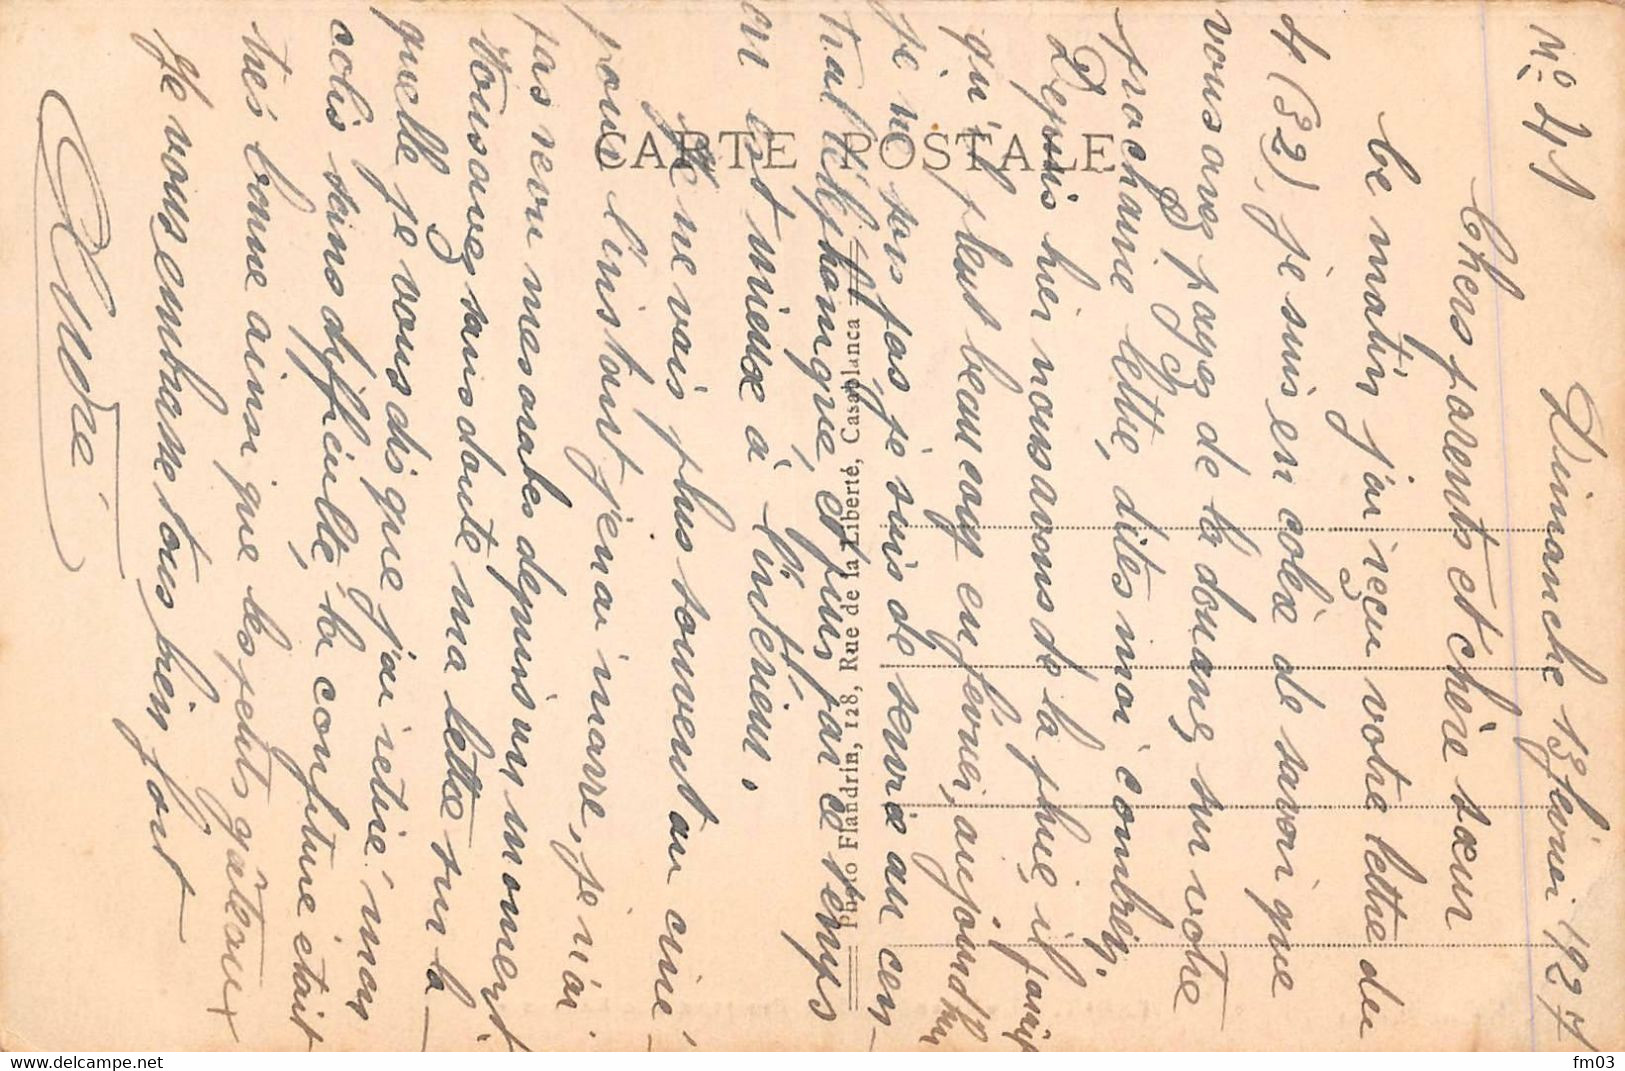 N° 41
Dimanche 13 février 1927
Chers parents et chère sœur
Ce matin j'ai reçu votre lettre du
4 (32), je suis en colèx de savoir que
vous avez payez de la douane, sur votre
prochaine lettre, dites moi combien.
Depuis hier nous avons de la pluie, il parait
qu'il pleut beaucoup en février, aujourd'hui
je ne sors pas je suis de service au cen-
tral téléphonique et puis par ce temps
on est mieux à l'intérieur.
Je ne vais plus souvent au ciné
pour l'instant j'en ai marre, je n'ai
pas revu mes arabes depuis un moment
Vous avez sans doute ma lettre sur la-
quelle je vous dis que j'ai retiré mon
colis sans difficulté, la confiture était
très bonne ainsi que les petits gâteaux
Je vous embrasse tous bien fort
André
CARTE POSTALE
Photo Flandrin, 128, Rue de la Liberté, Casablanca
delcampe.net
fm03